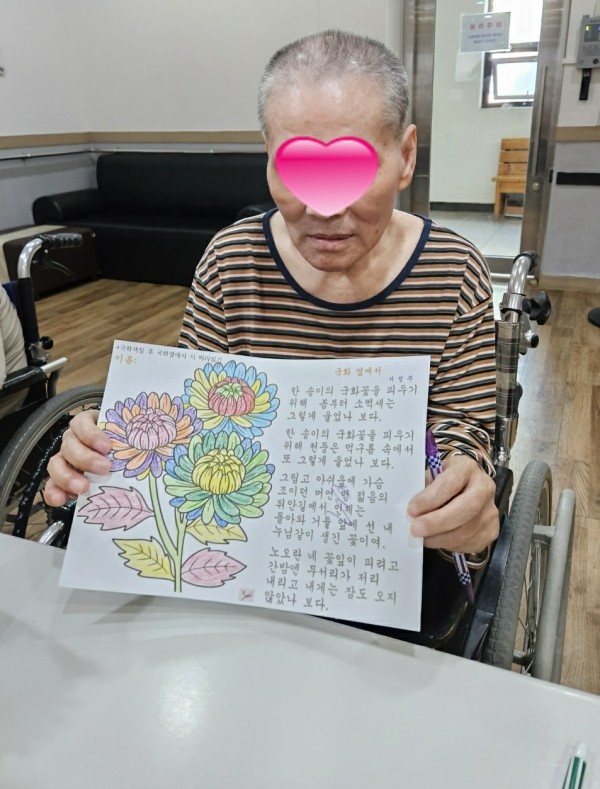 *국화색칠 후 국화옆에서 시 따라쓰기
이름:
국화 옆에서
서정주
한 송이의 국화꽃을 피우기
위해 봄부터 소쩍새는
그렇게 울었나 보다.
한 송이의 국화꽃을 피우기
위해 천둥은 먹구름 속에서
또 그렇게 울었나 보다.
그립고 아쉬움에 가슴
조이던 머언 먼 젊음의
뒤안길에서 인제는
돌아와 거울 앞에 선 내
누님같이 생긴 꽃이여.
노오란 네 꽃잎이 피려고
간밤엔 무서리가 저리
내리고 내게는 잠도 오지
않았나 보다.